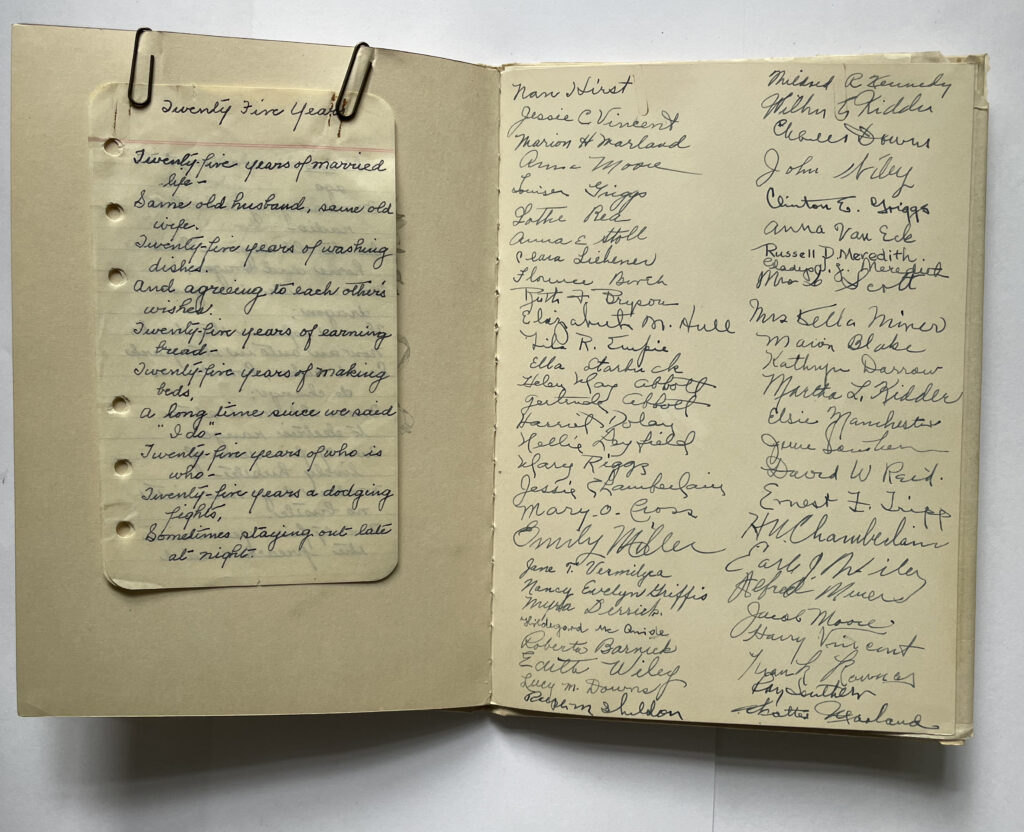 Twenty Five Years
Twenty-five years of married
life -
Same old husband, same old
wife.
Twenty-five years of washing
dishes.
And agreeing to each other's
wishes.
Twenty-five years of earning
bread -
Twenty-five years of making
beds,
A long time since we said
"I do" -
Twenty-five years of who is
who -
Twenty-five years a dodging
fights,
Sometimes staying out late
at night.
Nan Hirst
Jessie C Vincent
Marion H Marland
Anna Moore
Louise Griggs
Lottie Rea
Anna E Stoll
Clara Liebener
Florence Burch
Ruth F Bryson
Elizabeth M. Hull
R. Empie
Ella Starbuck
Helen May Abbott
Gertrude Abbott
Harriet Dolan
Nellie Layfield
Mary Riggs
Jessie Chamberlain
Mary O. Cross
Emily Miller
Jane T. Vermilyea
Nancy Evelyn Griffis
Myra Derrick.
Hildegard Mc
Roberta Barnick
Edith Wiley
Lucy M. Downs
Sheldon
Mildred R Kennedy
Wilbur G Kidder
Downs
John Wiley
Clinton E. Griggs
Anna Van Eck
Russell D. Meredith.
Gladys J. Meredith
Mrs Scott
Mrs Della Miner
Marion Blake
Kathryn Darrow
Martha L. Kidder
Elsie Manchester
June
David W Reid.
Ernest F. Tripp
H N Chamberlain
Earl J. Wiley
Alfred Miner
Jacob Moore
Harry Vincent
Frank
Ray Southern
Marland